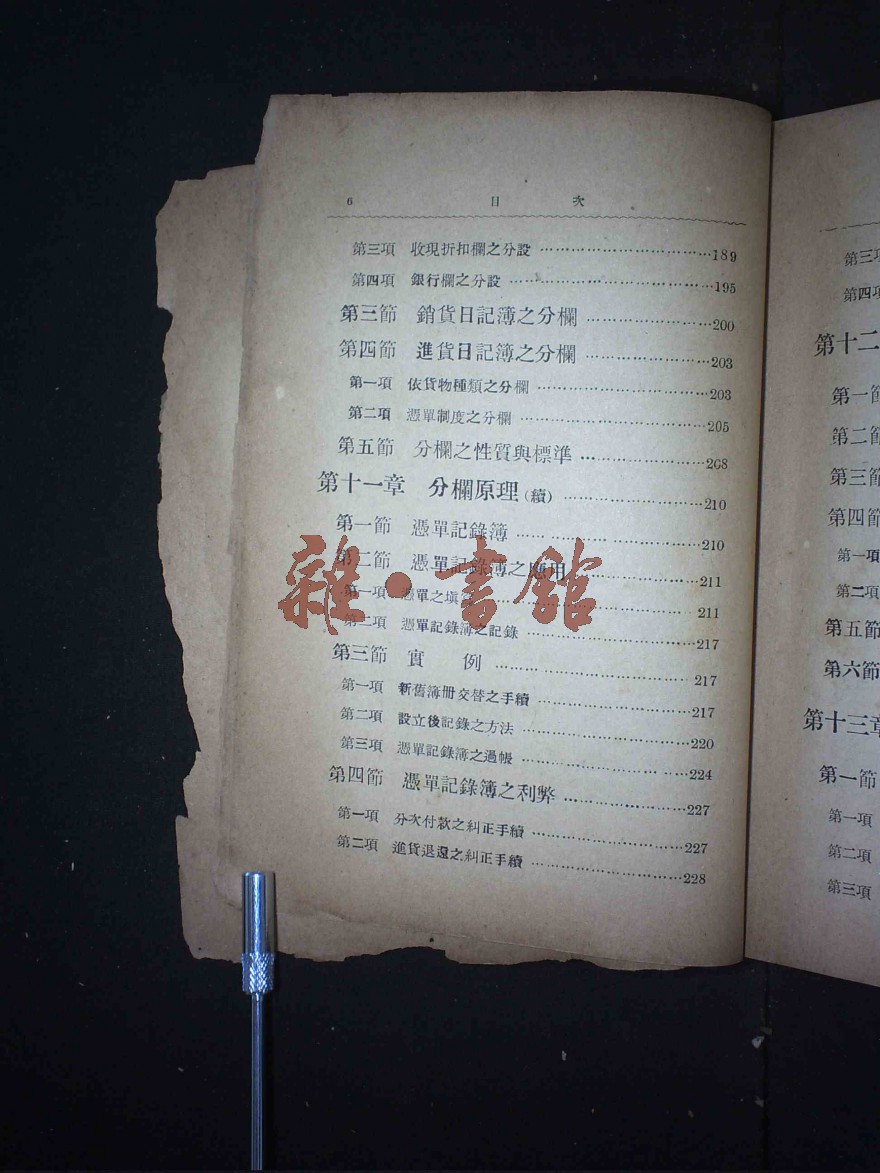 6 目 次
第三項 收現折扣欄之分設 …………………………189
第四項 銀行欄之分設 …………………………195
第三節 銷貨日記簿之分欄 …………………200
第四節 進貨日記簿之分欄 …………………203
第一項 依貨物種類之分欄 …………………………203
第二項 憑單制度之分欄 …………………………205
第五節 分欄之性質與標準 …………………208
第十一章 分欄原理(續) …………………210
第一節 憑單記錄簿 …………………………210
第二節 憑單記錄簿之應用 …………………211
第一項 憑單之填 …………………………211
第二項 憑單記錄簿之記錄 …………………………217
第三節 實 例 …………………………217
第一項 新舊簿册交替之手續 …………………………217
第二項 設立後記錄之方法 …………………………220
第三項 憑單記錄簿之過帳 …………………………224
第四節 憑單記錄簿之利弊 …………………227
第一項 分次付款之糾正手續 …………………………227
第二項 進貨退還之糾正手續 …………………………228
雜·書館
第三項
第四項
第十二
第一節
第二節
第三節
第四節
第一項
第二項
第五節
第六節
第十三章
第一節
第一項
第二項
第三項